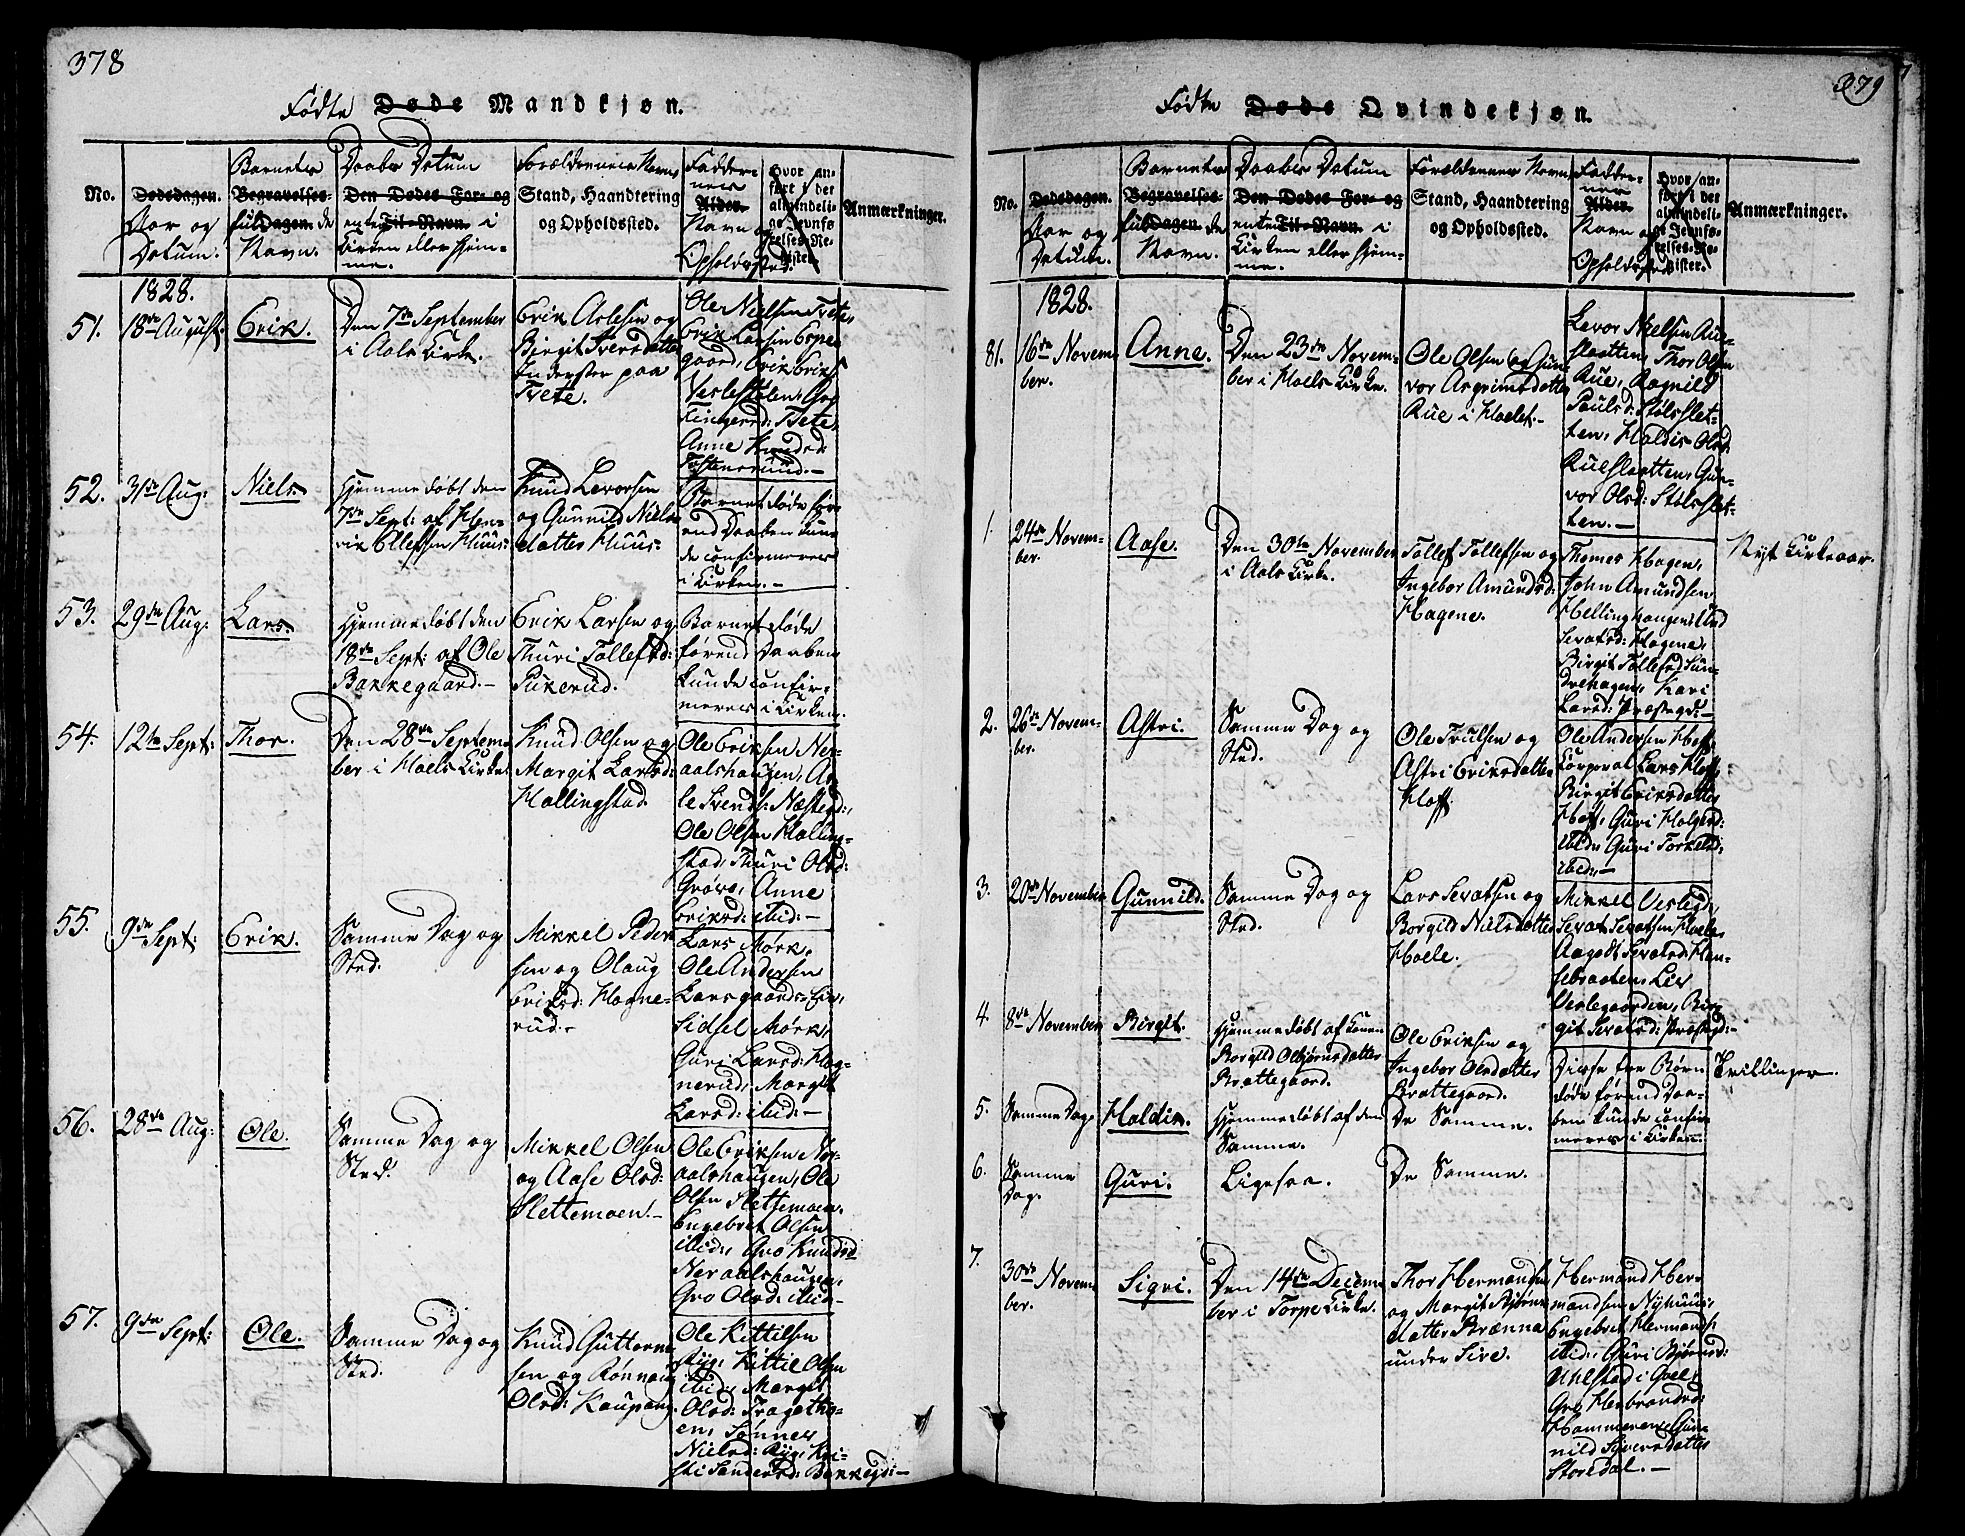 378
Fødte Døde Mandkjøn.
No.
Dødsdagen.
Aar og
Datum.
Barnets
Begravelses-
fulDagen. de
Navn.
Daabs Datum
Den Dødes For- og
enten Til-Navn i
Kirken eller Hjem-
me.
Forældrenes Navne
Stand, Haandtering
og Opholdssted.
Fadder-
nes
Alder.
Navn og
Opholdsted.
Hvor an-
ført i det
almindeli-
ge Jevnfø-
relses-Re-
gister.
Anmærkninger.
1828.
51.
18de August.
Erik.
Den 7de September
i Aals Kirke.
Erik Aslesen og
Birgit Iversdatter
Inderster paa
Tvete.
Ole Nielsen Tvete,
Erik Larsen Espe-
gaard, Erik Eriks:
Veslestølen, Gro
Tvete,
Anne Knuds:
52.
31te Aug:
Niels.
Hjemmedøbt den
7de Sept: af Hen-
rik Ellefsen Huus.
Knud Levorsen
og Gunnild Niels-
datter Huus.
Barnet døde før-
end Daaben kun-
de confirmeres
i Kirken.-
53.
29de Aug:
Lars.
Hjemmedøbt den
18de Sept: af Ole
Bakkegaard.-
Erik Larsen og
Thuri Tollefsd:
Pukerud.
Barnet døde
førend Daaben
kunde confir-
meres i Kirken.
54.
12te Sept:
Thor.
Den 28de Septem-
ber i Hoels Kirke.
Knud Olsen og
Margit Larsd:
Hallingstad.
Ole Eriksen Ner-
aalshaugen, As-
le Svends: Næsteg:,
Ole Olsen Halling-
stad, Thuri Olsd:
Grøvo, Anne
Eriksd: ibid:-
55.
9de Sept:
Erik.
Samme Dag og
Sted.
Mikkel Peder-
sen og Olaug
Eriksd: Hagne-
rud.-
Lars Mørk,
Ole Andersen
Larsgaards-Eie,
Sidsel Mørk,
Guri Larsd: Hag-
nerud, Margit
Larsd: ibid:-
56.
28de Aug:
Ole.
Samme Dag og
Sted.
Mikkel Olsen
og Aase Olsd:
Slettemoen.-
Ole Eriksen Ner-
aalshaugen, Ole
Olsen Slettemoen,
Engebret Olsen
ibid:, Gro Knudsd
Neraalshaugen,
Gro Olsd: ibid:-
57.
9de Sept:
Ole.
Samme Dag og
Sted.
Knud Guttorm-
sen og Rønnaug
Olsd: Kaupang.
Ole Kittilsen
Ryg, Kittil Olsen
ibid:, Margit
Olsd: Tragetho-
en, Sønnev
Nielsd: Ryg, Kri-
sti Sandersd: Bakkegd:-
379
Fødte Døde Qvindekjøn.
No.
Dødsdagen.
Aar og
Datum.
Barnets
Begravelses-
fulDagen. de
Navn.
Daabs Datum
Den Dødes For- og
enten Til-Navn i
Kirken eller Hjem-
me.
Forældrenes Navne,
Stand, Haandtering
og Opholdssted.
Fadder-
nes
Alder.
Navn og
Opholdsted.
Hvor an-
ført i det
almindeli-
ge Jevnfø-
relses-Re-
gister.
Anmærkninger.
1828.
81.
16de Novem-
ber.
Anne.
Den 23de Novem-
ber i Hoels Kirke.
Ole Olsen og Gun-
vor Asgrimsdatter
Rue i Hoelet.-
Levor Nielsen Rue-
slaatten, Thor Olsen
Rue, Ragnild
Paulsd: Stølsslet-
ten, Haldis Olsd:
Rueslaatten, Gun-
vor Olsd: Stølsslet-
ten.-
1.
24de Novem-
ber.
Aase.
Den 30te November
i Aals Kirke.
Tollef Tollefsen og
Ingebor Amundsd:
Hagene.
Thomes Hagen,
John Amundsen
Hellinghaugen,
Sevatsd: Hagene,
Birgit Tollefsd Sun-
drehagen, Kari
Larsd: Præstegd:-
Nyt Kirkeaar.
2.
26de Novem-
ber.
Astri.
Samme Dag og
Sted.
Ole Trulsen og
Astri Eriksdatter
Hoff.
Ole Andersen Hoff,
Corporal Lars Hoff,
Birgit Eriksdatter
Hoff, Guri Holgersd:
ibid:, Guri Torkelsd:
ibid:-
3.
20de November
Gunnild.
Samme Dag og
Sted.
Lars Sevatsen og
Borgild Nielsdatter
Hoele.
MikkelVeslegd:,
Sevat Sevatsen Hoele,
Aagodt Sevatsd: Han-
sebraaten, Liv
Veslegaarden, Bir-
git Sevatsd: Præstegd:-
4.
8de November
Birgit.
Hjemmedøbt af Konen
Borgild Olbjørnsdatter
Brattegaard.
Ole Eriksen og
Ingebor Olsdatter
Brattegaard.
Disse tre Børn
døde førend Daa-
ben kunde confir-
meres i Kirken.
Trillinger.
5.
Samme Dag.
Haldis.
Hjemmedøbt af den
Samme.
De Samme.
6.
Samme
Dag.
Guri.
Ligesaa.
De Samme.
7.
30de Novem-
ber.
Sigri.
Den 14de Decem-
ber i Torpe Kirke.
Thor Hermansen
og Margit Asbjørns-
datter Brænna
under Sire.
Hermand Her-
mandsen Nyhuus,
Engebret Hermands:
ibid:, Guri Bjørnsd:
Uhlstad i Goel,
Gro Herbrandsd:
Hammeren, Gun-
nild Siversdatter
Storedal.-